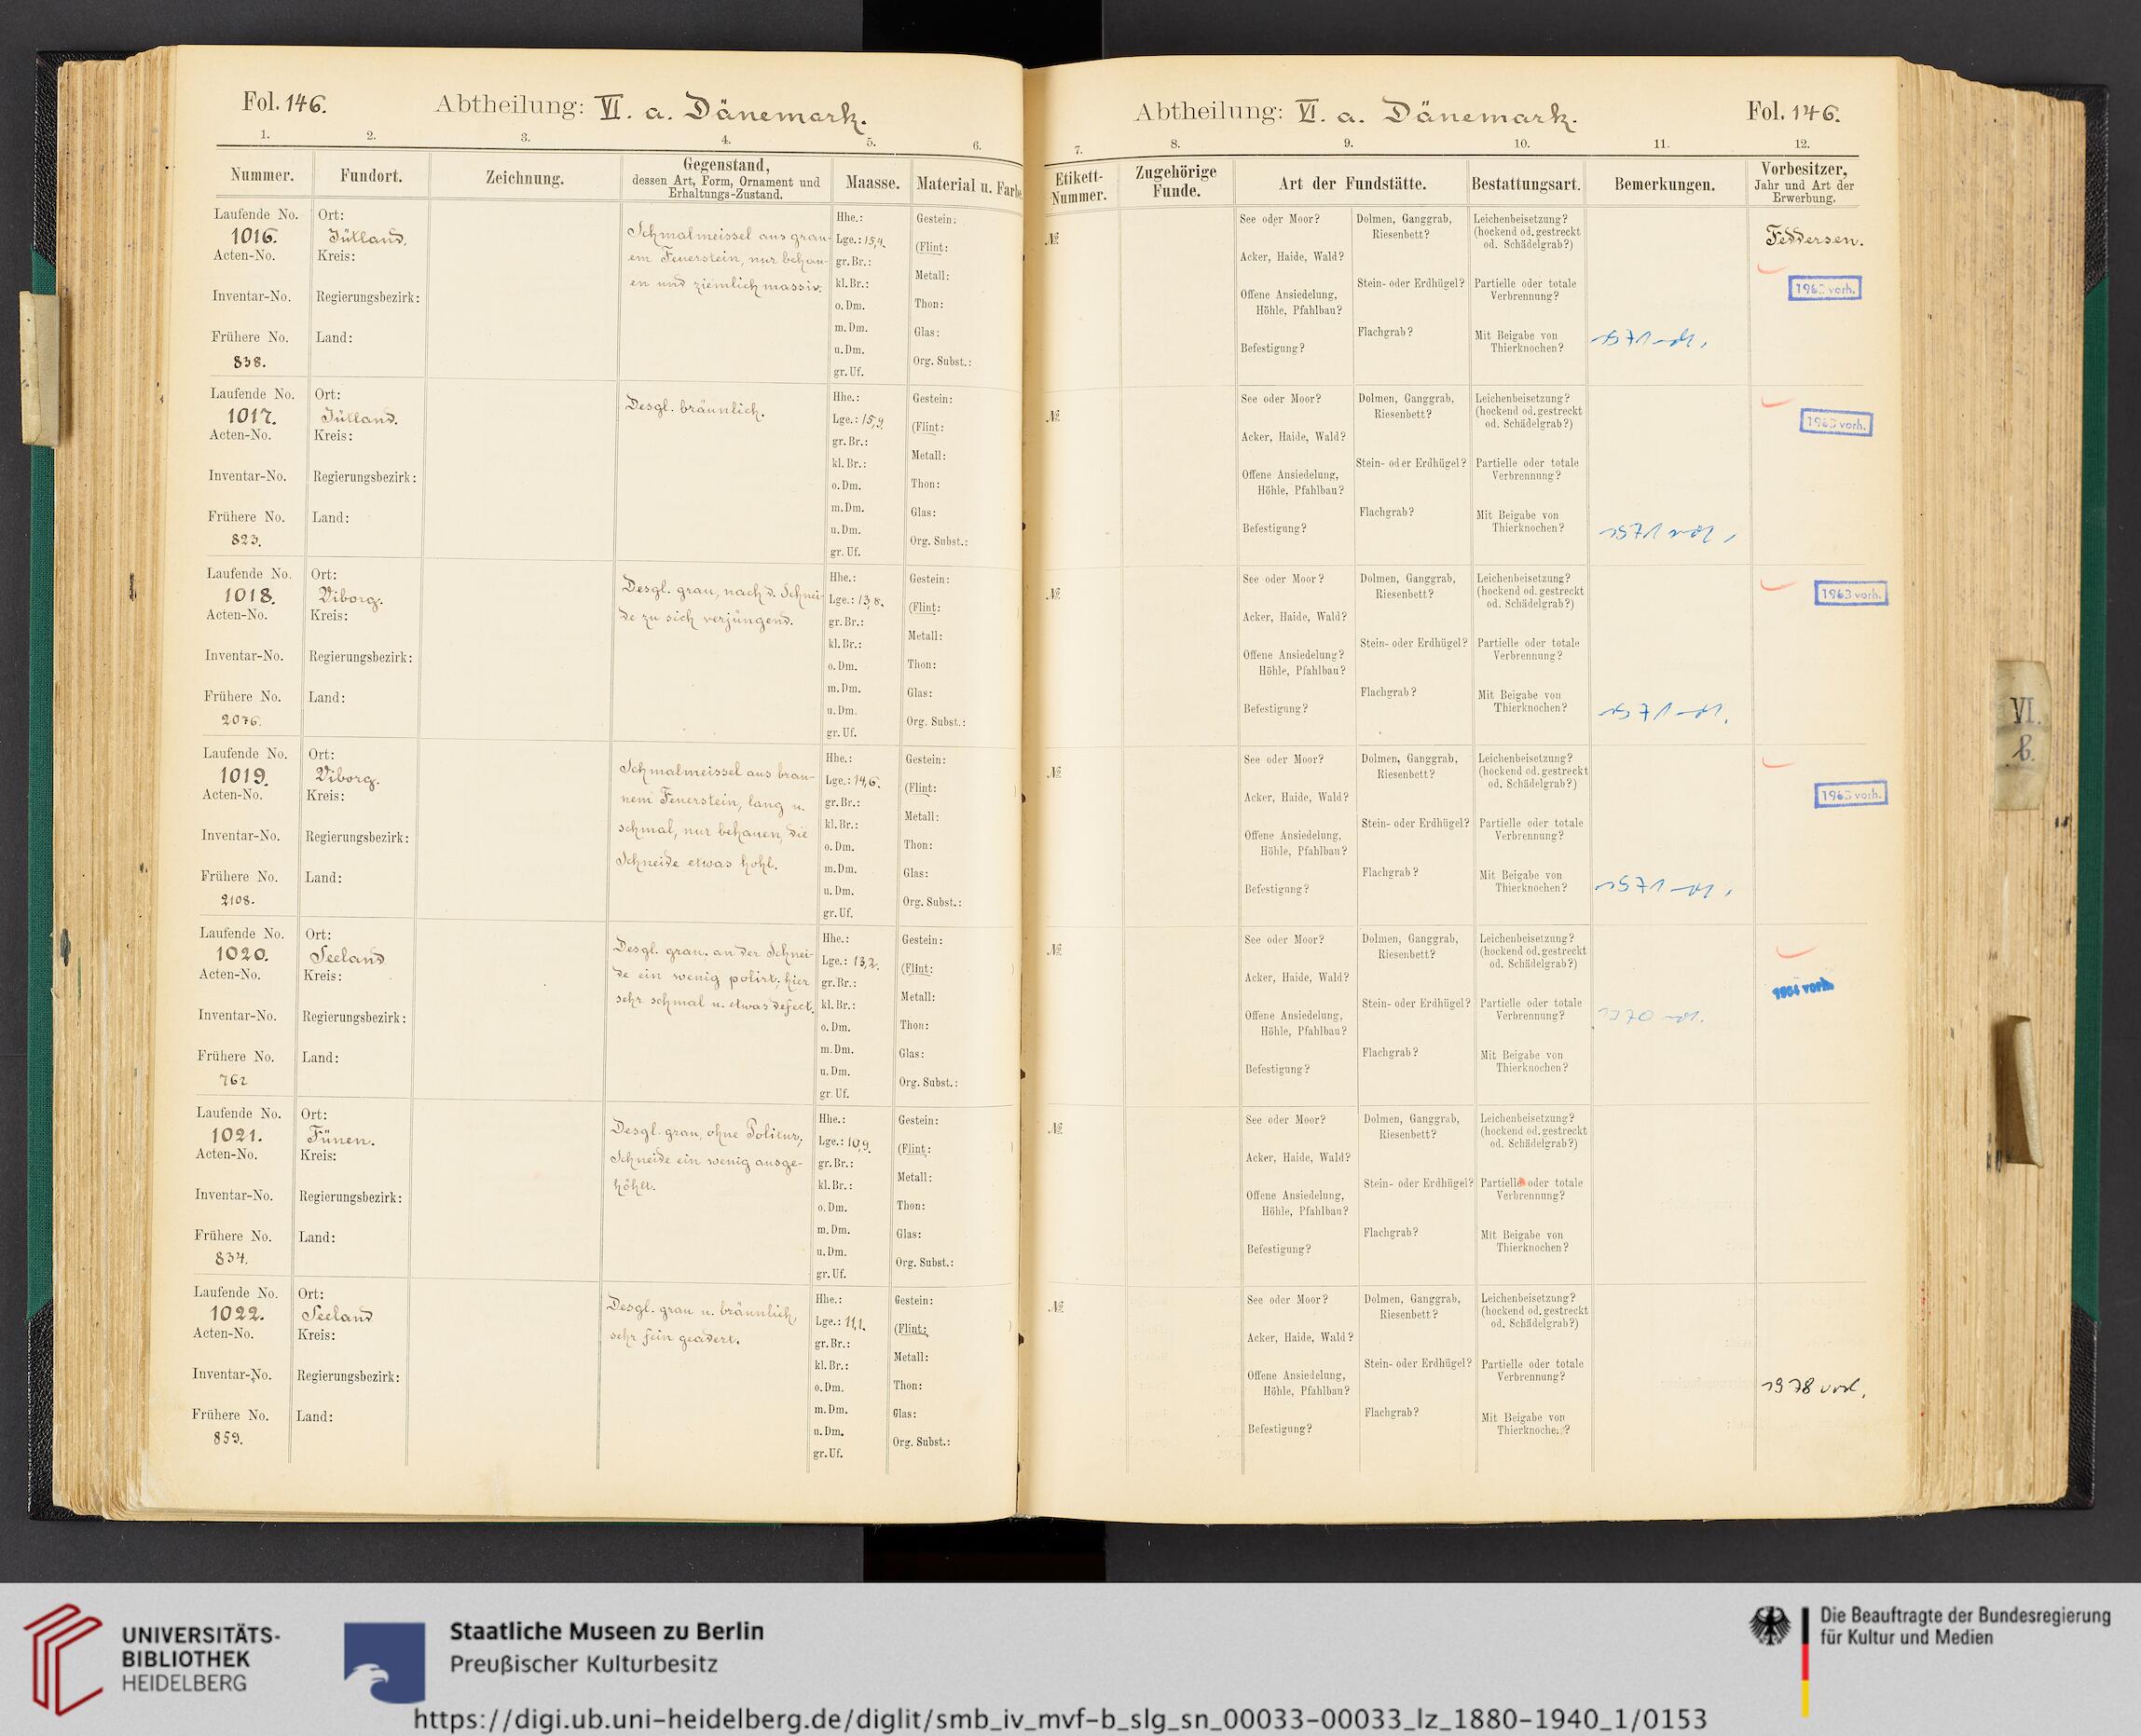 Fol. 146.
Abtheilung: VI. a. Dänemark.
1. 2. 3. 4. 5. 6.
Nummer. Fundort. Zeichnung. Gegenstand, dessen Art, Form, Ornament und Erhaltungs-Zustand. Maasse. Material u. Farbe
Laufende No.
1016.
Acten-No.
Inventar-No.
Frühere No.
838.
Ort:
Jütland.
Kreis:
Regierungsbezirk:
Land:
Schmalmeissel aus grau-
em Feuerstein, nur behau-
en und ziemlich massiv.
Hhe.:
Lge.: 15,4.
gr. Br.:
kl. Br.:
o. Dm.
m. Dm.
u. Dm.
gr. Uf.
Gestein:
(Flint:
Metall:
Thon:
Glas:
Org. Subst.:
Laufende No.
1017.
Acten-No.
Inventar-No.
Frühere No.
823.
Ort:
Jütland.
Kreis:
Regierungsbezirk:
Land:
Desgl. bräunlich.
Hhe.:
Lge.: 15,9
gr. Br.:
kl. Br.:
o. Dm.
m. Dm.
u. Dm.
gr. Uf.
Gestein:
(Flint:
Metall:
Thon:
Glas:
Org. Subst.:
Laufende No.
1018.
Acten-No.
Inventar-No.
Frühere No.
2076.
Ort:
Viborg.
Kreis:
Regierungsbezirk:
Land:
Desgl. grau, nach d. Schnei-
de zu sich verjüngend.
Hhe.:
Lge.: 13,8.
gr. Br.:
kl. Br.:
o. Dm.
m. Dm.
u. Dm.
gr. Uf.
Gestein:
(Flint:
Metall:
Thon:
Glas:
Org. Subst.:
Laufende No.
1019.
Acten-No.
Inventar-No.
Frühere No.
2108.
Ort:
Viborg.
Kreis:
Regierungsbezirk:
Land:
Schmalmeissel aus brau-
nem Feuerstein, lang u.
schmal, nur behauen, die
Schneide etwas hohl.
Hhe.:
Lge.: 14,6.
gr. Br.:
kl. Br.:
o. Dm.
m. Dm.
u. Dm.
gr. Uf.
Gestein:
(Flint: )
Metall:
Thon:
Glas:
Org. Subst.:
Laufende No.
1020.
Acten-No.
Inventar-No.
Frühere No.
762
Ort:
Seeland
Kreis:
Regierungsbezirk:
Land:
Desgl. grau. an der Schnei-
de ein wenig polirt; hier
sehr schmal u. etwas defect.
Hhe.:
Lge.: 13,2.
gr. Br.:
kl. Br.:
o. Dm.
m. Dm.
u. Dm.
gr. Uf.
Gestein:
(Flint: )
Metall:
Thon:
Glas:
Org. Subst.:
Laufende No.
1021.
Acten-No.
Inventar-No.
Frühere No.
834.
Ort:
Fünen.
Kreis:
Regierungsbezirk:
Land:
Desgl. grau, ohne Politur,
Schneide ein wenig ausge-
höhlt.
Hhe.:
Lge.: 10,9.
gr. Br.:
kl. Br.:
o. Dm.
m. Dm.
u. Dm.
gr. Uf.
Gestein:
(Flint: )
Metall:
Thon:
Glas:
Org. Subst.:
Laufende No.
1022.
Acten-No.
Inventar-No.
Frühere No.
859.
Ort:
Seeland
Kreis:
Regierungsbezirk:
Land:
Desgl. grau u. bräunlich,
sehr fein geädert.
Hhe.:
Lge.: 11,1.
gr. Br.:
kl. Br.:
o. Dm.
m. Dm.
u. Dm.
gr. Uf.
Gestein:
(Flint: )
Metall:
Thon:
Glas:
Org. Subst.:
Abtheilung: VI. a. Dänemark.
Fol. 146.
7. 8. 9. 10. 11. 12.
Etikett-Nummer. Zugehörige Funde. Art der Fundstätte. Bestattungsart. Bemerkungen. Vorbesitzer, Jahr und Art der Erwerbung.
№
See oder Moor?
Acker, Haide, Wald?
Offene Ansiedelung,
Höhle, Pfahlbau?
Befestigung?
Dolmen, Ganggrab,
Riesenbett?
Stein- oder Erdhügel?
Flachgrab?
Leichenbeisetzung?
(hockend od. gestreckt
od. Schädelgrab?)
Partielle oder totale
Verbrennung?
Mit Beigabe von
Thierknochen?
1971 vorh.
Feddersen.
1963 vorh.
№
See oder Moor?
Acker, Haide, Wald?
Offene Ansiedelung,
Höhle, Pfahlbau?
Befestigung?
Dolmen, Ganggrab,
Riesenbett?
Stein- oder Erdhügel?
Flachgrab?
Leichenbeisetzung?
(hockend od. gestreckt
od. Schädelgrab?)
Partielle oder totale
Verbrennung?
Mit Beigabe von
Thierknochen?
1971 vorh.
1963 vorh.
№
See oder Moor?
Acker, Haide, Wald?
Offene Ansiedelung?
Höhle, Pfahlbau?
Befestigung?
Dolmen, Ganggrab,
Riesenbett?
Stein- oder Erdhügel?
Flachgrab?
Leichenbeisetzung?
(hockend od. gestreckt
od. Schädelgrab?)
Partielle oder totale
Verbrennung?
Mit Beigabe von
Thierknochen?
1971 vorh.
1963 vorh.
№
See oder Moor?
Acker, Haide, Wald?
Offene Ansiedelung,
Höhle, Pfahlbau?
Befestigung?
Dolmen, Ganggrab,
Riesenbett?
Stein- oder Erdhügel?
Flachgrab?
Leichenbeisetzung?
(hockend od. gestreckt
od. Schädelgrab?)
Partielle oder totale
Verbrennung?
Mit Beigabe von
Thierknochen?
1971 vorh.
1963 vorh.
№
See oder Moor?
Acker, Haide, Wald?
Offene Ansiedelung,
Höhle, Pfahlbau?
Befestigung?
Dolmen, Ganggrab,
Riesenbett?
Stein- oder Erdhügel?
Flachgrab?
Leichenbeisetzung?
(hockend od. gestreckt
od. Schädelgrab?)
Partielle oder totale
Verbrennung?
Mit Beigabe von
Thierknochen?
1970 vorh.
1964 vorh.
№
See oder Moor?
Acker, Haide, Wald?
Offene Ansiedelung,
Höhle, Pfahlbau?
Befestigung?
Dolmen, Ganggrab,
Riesenbett?
Stein- oder Erdhügel?
Flachgrab?
Leichenbeisetzung?
(hockend od. gestreckt
od. Schädelgrab?)
Partielle oder totale
Verbrennung?
Mit Beigabe von
Thierknochen?
№
See oder Moor?
Acker, Haide, Wald?
Offene Ansiedelung,
Höhle, Pfahlbau?
Befestigung?
Dolmen, Ganggrab,
Riesenbett?
Stein- oder Erdhügel?
Flachgrab?
Leichenbeisetzung?
(hockend od. gestreckt
od. Schädelgrab?)
Partielle oder totale
Verbrennung?
Mit Beigabe von
Thierknochen?
1978 vorh.
VI.
b.
UNIVERSITÄTS-
BIBLIOTHEK
HEIDELBERG
Staatliche Museen zu Berlin
Preußischer Kulturbesitz
Die Beauftragte der Bundesregierung
für Kultur und Medien
https://digi.ub.uni-heidelberg.de/diglit/smb_iv_mvf-b_slg_sn_00033-00033_lz_1880-1940_1/0153